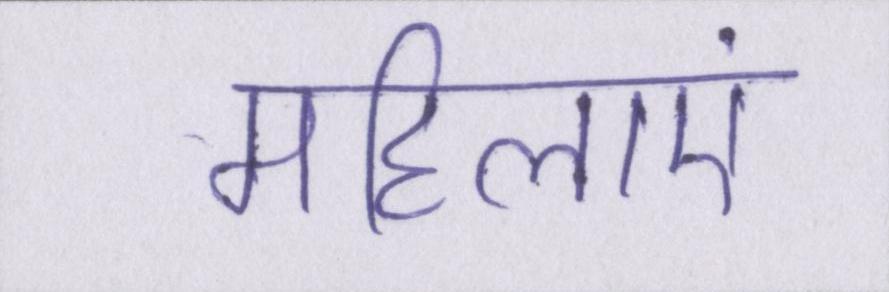 महिलाएं